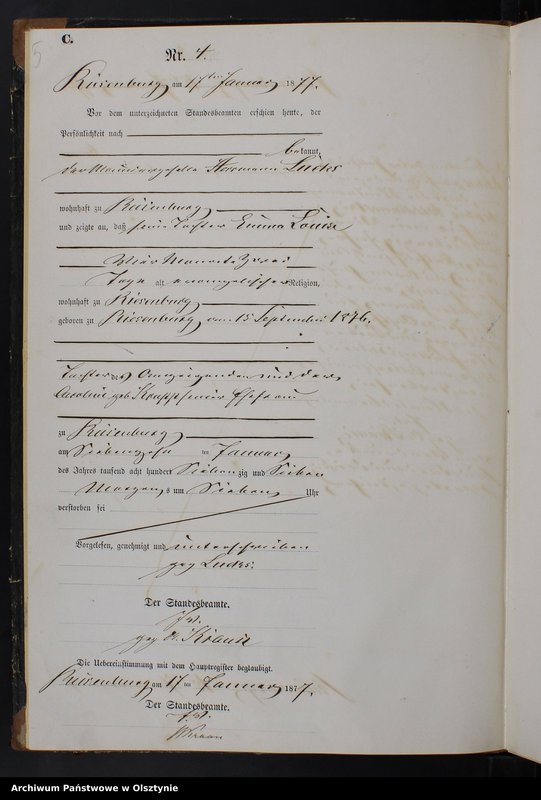 5
C.
Nr. 4.
Riesenburg am 17ten Januar 1877.
Vor dem unterzeichneten Standesbeamten erschien heute, der
Persönlichkeit nach
bekannt,
der Maurergeselle Herrmann
wohnhaft zu Riesenburg
und zeigte an, daß seine Tochter Emma Louise
vier Monate zwei
Tage alt evangelischer Religion,
wohnhaft zu Riesenburg
geboren zu Riesenburg am 15 September 1876.
Tochter des Anzeigenden und der
Caroline geb. Ehefrau
zu Riesenburg
am Siebenzehn ten Januar
des Jahres tausend acht hundert Siebenzig und Sieben
Morgens um Sieben Uhr
verstorben sei
Vorgelesen, genehmigt und unterschrieben
gez
Der Standesbeamte.
gez
Die Uebereinstimmung mit dem Hauptregister beglaubigt.
Riesenburg am 17 ten Januar 1877.
Der Standesbeamte.
Archiwum Państwowe w Olsztynie